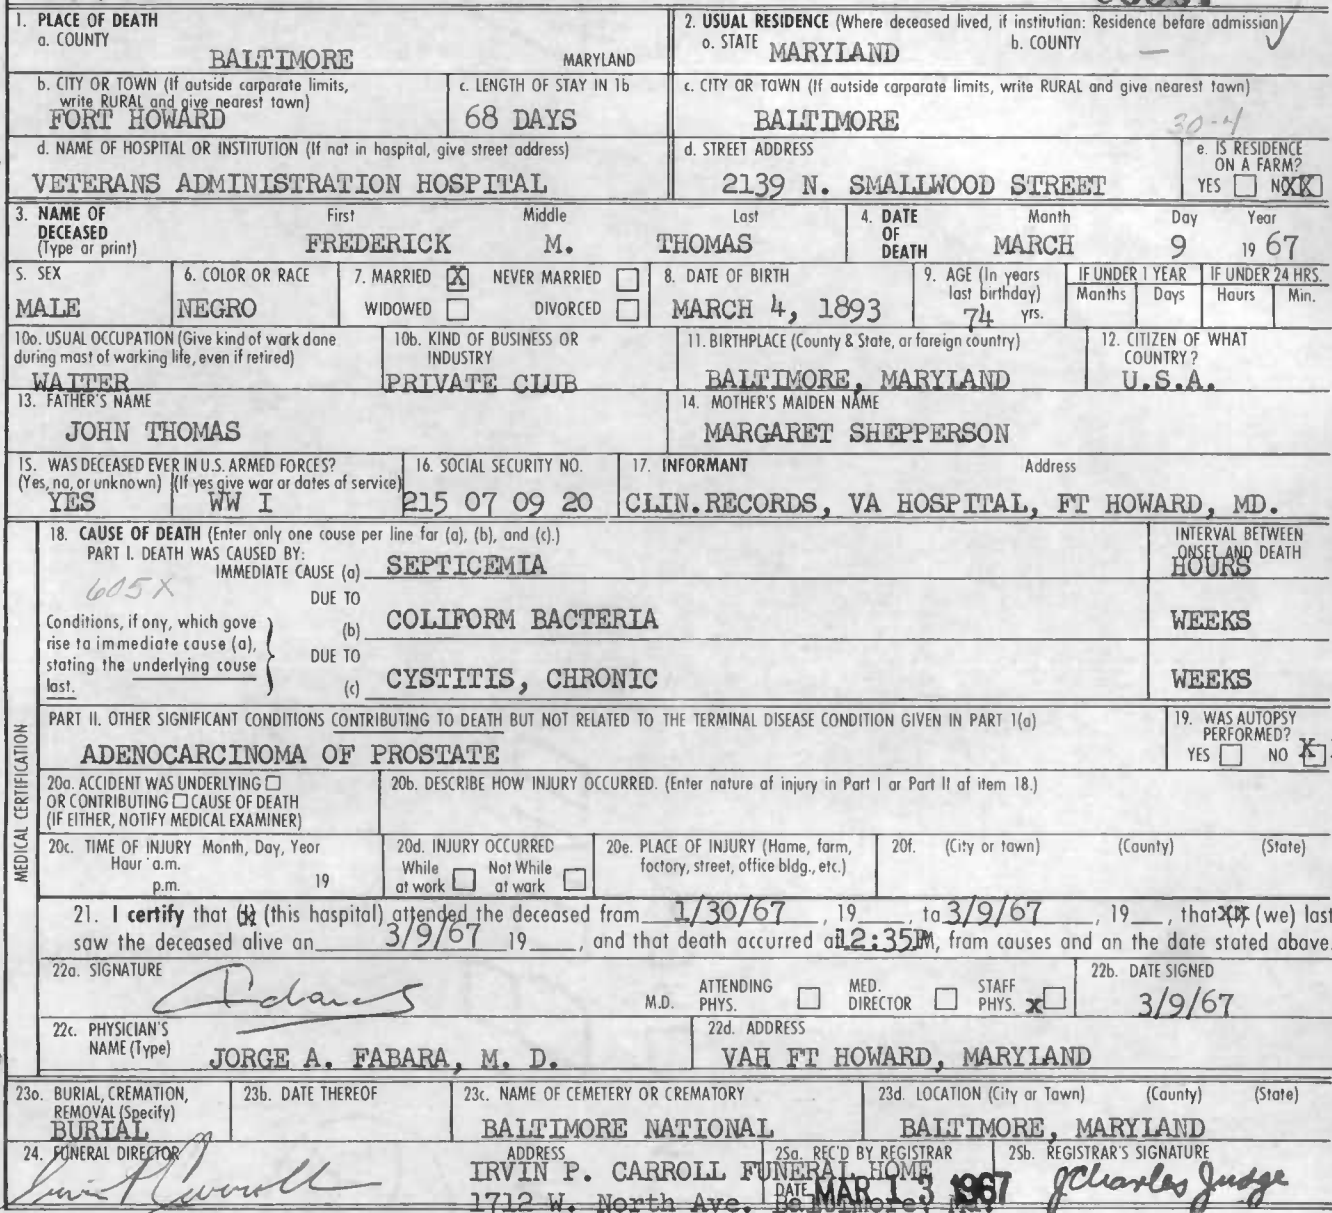 1. PLACE OF DEATH
a. COUNTY
BALTIMORE MARYLAND
2. USUAL RESIDENCE (Where deceased lived, if institution: Residence before admission)
a. STATE MARYLAND b. COUNTY —
b. CITY OR TOWN (If outside corporate limits, write RURAL and give nearest town)
FORT HOWARD
c. LENGTH OF STAY IN 1b
68 DAYS
c. CITY OR TOWN (If outside corporate limits, write RURAL and give nearest town)
BALTIMORE
30-4
d. NAME OF HOSPITAL OR INSTITUTION (If not in hospital, give street address)
VETERANS ADMINISTRATION HOSPITAL
d. STREET ADDRESS
2139 N. SMALLWOOD STREET
e. IS RESIDENCE ON A FARM?
YES NO XX
3. NAME OF DECEASED (Type or print)
First Middle Last
FREDERICK M. THOMAS
4. DATE OF DEATH
Month Day Year
MARCH 9 19 67
5. SEX
MALE
6. COLOR OR RACE
NEGRO
7. MARRIED X NEVER MARRIED
WIDOWED DIVORCED
8. DATE OF BIRTH
MARCH 4, 1893
9. AGE (In years last birthday)
74 yrs.
IF UNDER 1 YEAR
Months Days
IF UNDER 24 HRS.
Hours Min.
10a. USUAL OCCUPATION (Give kind of work done during most of working life, even if retired)
WAITER
10b. KIND OF BUSINESS OR INDUSTRY
PRIVATE CLUB
11. BIRTHPLACE (County & State, or foreign country)
BALTIMORE, MARYLAND
12. CITIZEN OF WHAT COUNTRY?
U.S.A.
13. FATHER'S NAME
JOHN THOMAS
14. MOTHER'S MAIDEN NAME
MARGARET SHEPPERSON
15. WAS DECEASED EVER IN U.S. ARMED FORCES?
(Yes, no, or unknown) (If yes give war or dates of service)
YES WW I
16. SOCIAL SECURITY NO.
215 07 09 20
17. INFORMANT Address
CLIN.RECORDS, VA HOSPITAL, FT HOWARD, MD.
MEDICAL CERTIFICATION
18. CAUSE OF DEATH (Enter only one cause per line for (a), (b), and (c).)
PART I. DEATH WAS CAUSED BY:
IMMEDIATE CAUSE (a) SEPTICEMIA
INTERVAL BETWEEN ONSET AND DEATH
HOURS
605X
Conditions, if any, which gave rise to immediate cause (a), stating the underlying cause last.
DUE TO
(b) COLIFORM BACTERIA WEEKS
DUE TO
(c) CYSTITIS, CHRONIC WEEKS
PART II. OTHER SIGNIFICANT CONDITIONS CONTRIBUTING TO DEATH BUT NOT RELATED TO THE TERMINAL DISEASE CONDITION GIVEN IN PART 1(a)
ADENOCARCINOMA OF PROSTATE
19. WAS AUTOPSY PERFORMED?
YES NO X
20a. ACCIDENT WAS UNDERLYING
OR CONTRIBUTING CAUSE OF DEATH
(IF EITHER, NOTIFY MEDICAL EXAMINER)
20b. DESCRIBE HOW INJURY OCCURRED. (Enter nature of injury in Part I or Part II of item 18.)
20c. TIME OF INJURY Month, Day, Year
Hour a.m.
p.m. 19
20d. INJURY OCCURRED
While at work Not While at work
20e. PLACE OF INJURY (Home, farm, factory, street, office bldg., etc.)
20f. (City or town) (County) (State)
21. I certify that (I) (this hospital) attended the deceased from 1/30/67, 19 , to 3/9/67, 19 , that XX (we) last
saw the deceased alive on 3/9/67 19 , and that death occurred at 12:35PM, from causes and on the date stated above.
22a. SIGNATURE
M.D.
ATTENDING PHYS. MED. DIRECTOR STAFF PHYS. X
22b. DATE SIGNED
3/9/67
22c. PHYSICIAN'S NAME (Type)
JORGE A. FABARA, M. D.
22d. ADDRESS
VAH FT HOWARD, MARYLAND
23a. BURIAL, CREMATION, REMOVAL (Specify)
BURIAL
23b. DATE THEREOF
23c. NAME OF CEMETERY OR CREMATORY
BALTIMORE NATIONAL
23d. LOCATION (City or Town) (County) (State)
BALTIMORE, MARYLAND
24. FUNERAL DIRECTOR
ADDRESS
IRVIN P. CARROLL FUNERAL HOME
1712 W. North Ave. Baltimore, Md.
25a. REC'D BY REGISTRAR
DATE MAR 13 1967
25b. REGISTRAR'S SIGNATURE
J Charles Judge